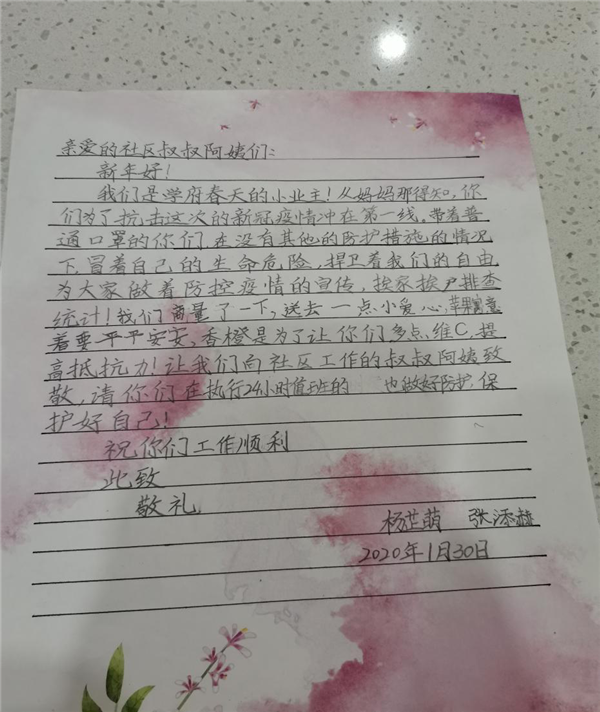 亲爱的社区叔叔阿姨们:
新年好!
我们是学府春天的小业主!从妈妈那得知,你
们为了抗击这次的新冠疫情冲在第一线,带着普
通口罩的你们在没有其他的防护措施的情况
下,冒着自己的生命危险,捍卫着我们的自由
为大家做着防控疫情的宣传,挨家挨户排查
统计!我们商量了一下,送去一点小爱心,苹果寓意
着要平平安安、香橙是为了让你们多点维C,提
高抵抗力!让我们向社区工作的叔叔阿姨致
敬,请你们在执行24小时值班的 也做好防护,保
护好自己!
祝你们工作顺利
此致
敬礼
杨芷萌 张添赫
2020年1月30日